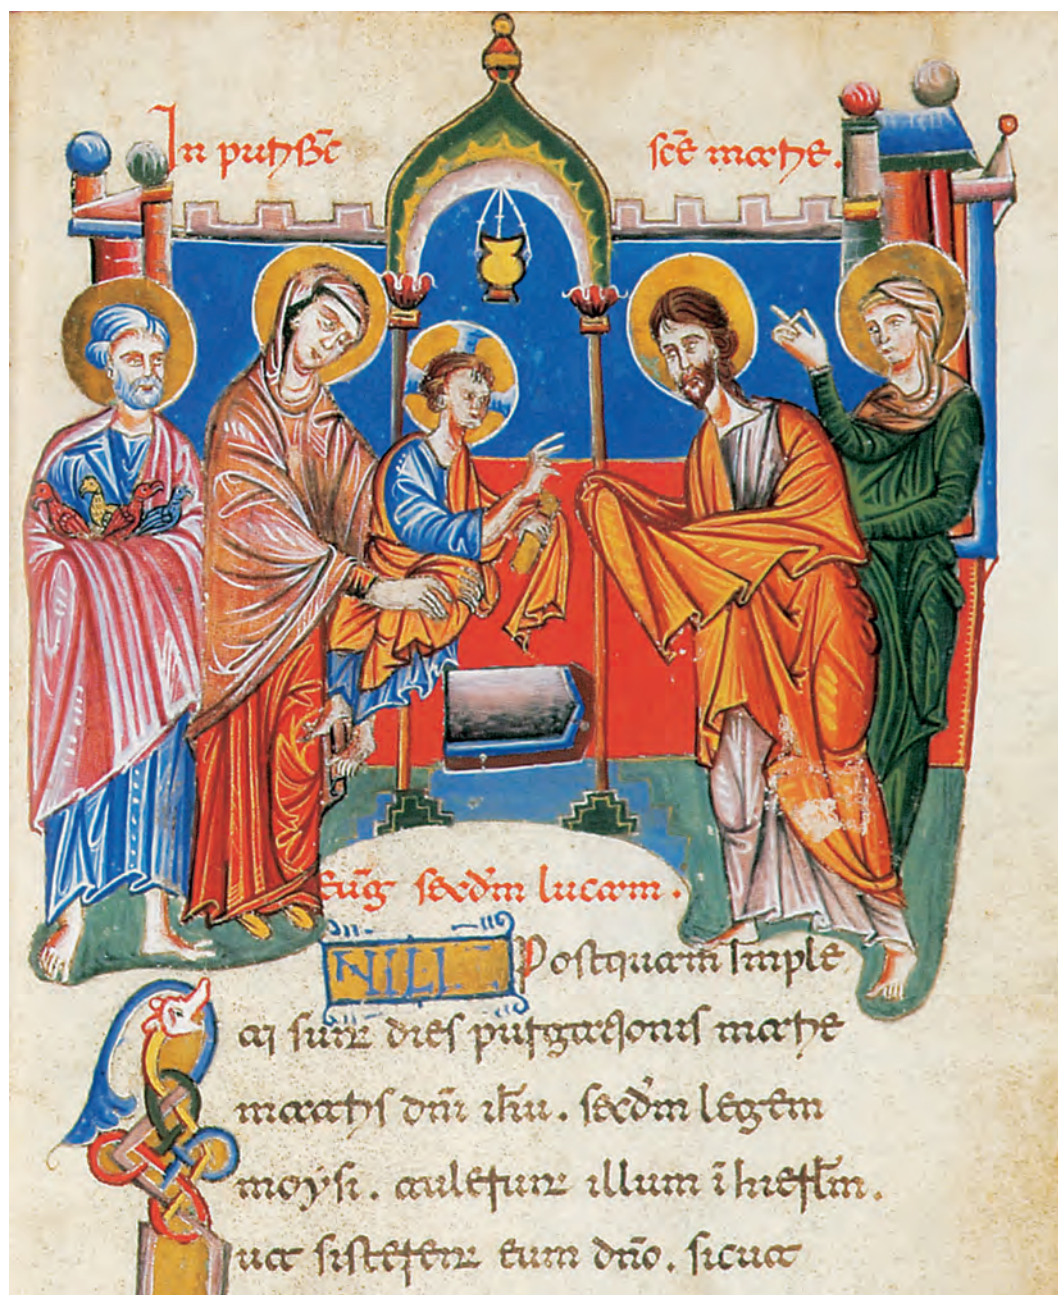 In pur̄ sc̄e marie.
Eūg sec̄dm lucam.
N ILL Postquam imple
ti sunt dies purgationis marie
matris dn̄i ih̄u. sec̄dm legem
moysi. tulerunt illum ī hierl̄m.
ut sisterent eum dn̄o. sicut